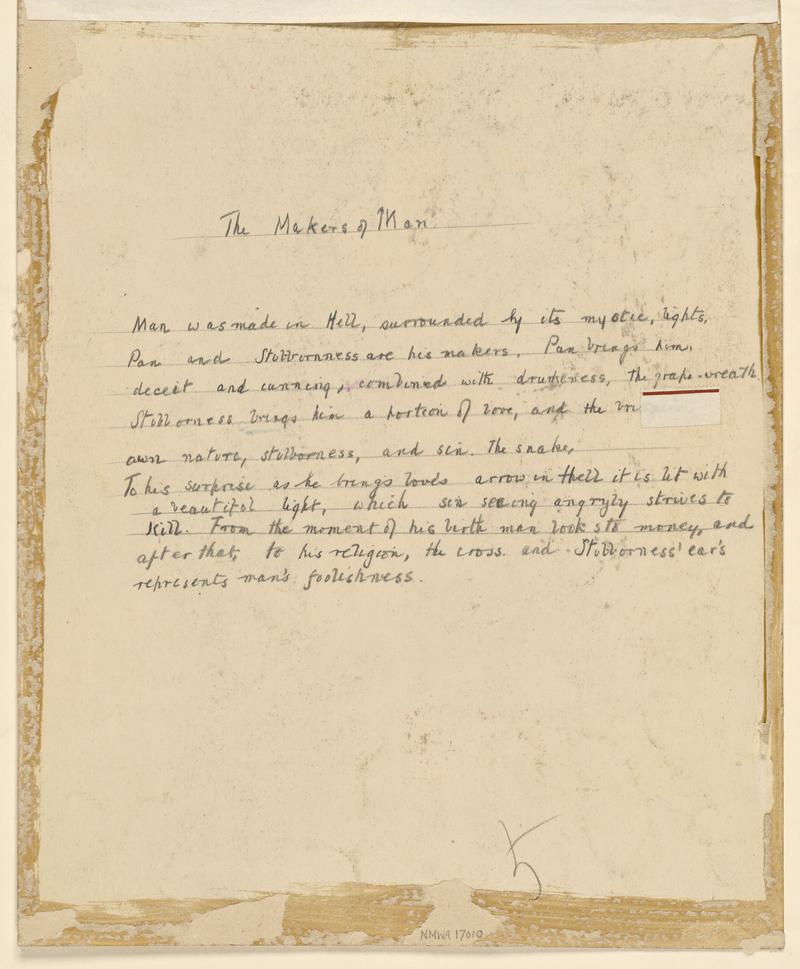 The Makers of Man.
Man was made in Hell, surrounded by its mystic, lights,
Pan and Stubbornness are his makers. Pan brings him,
deceit and cunning, combined with drunkeness, the grape-wreath
Stubborness brings him a portion of love, and the
own nature, stubborness, and sin. The snake,
To his surprise as he brings loves arrow in Hell it is lit with
a beautiful light, which sin seeing angryly strives to
Kill. From the moment of his birth man looks to money, and
after that, to his religion, the cross. and Stubborness' ear's
represents man's foolishness.
5
NMWA 17010